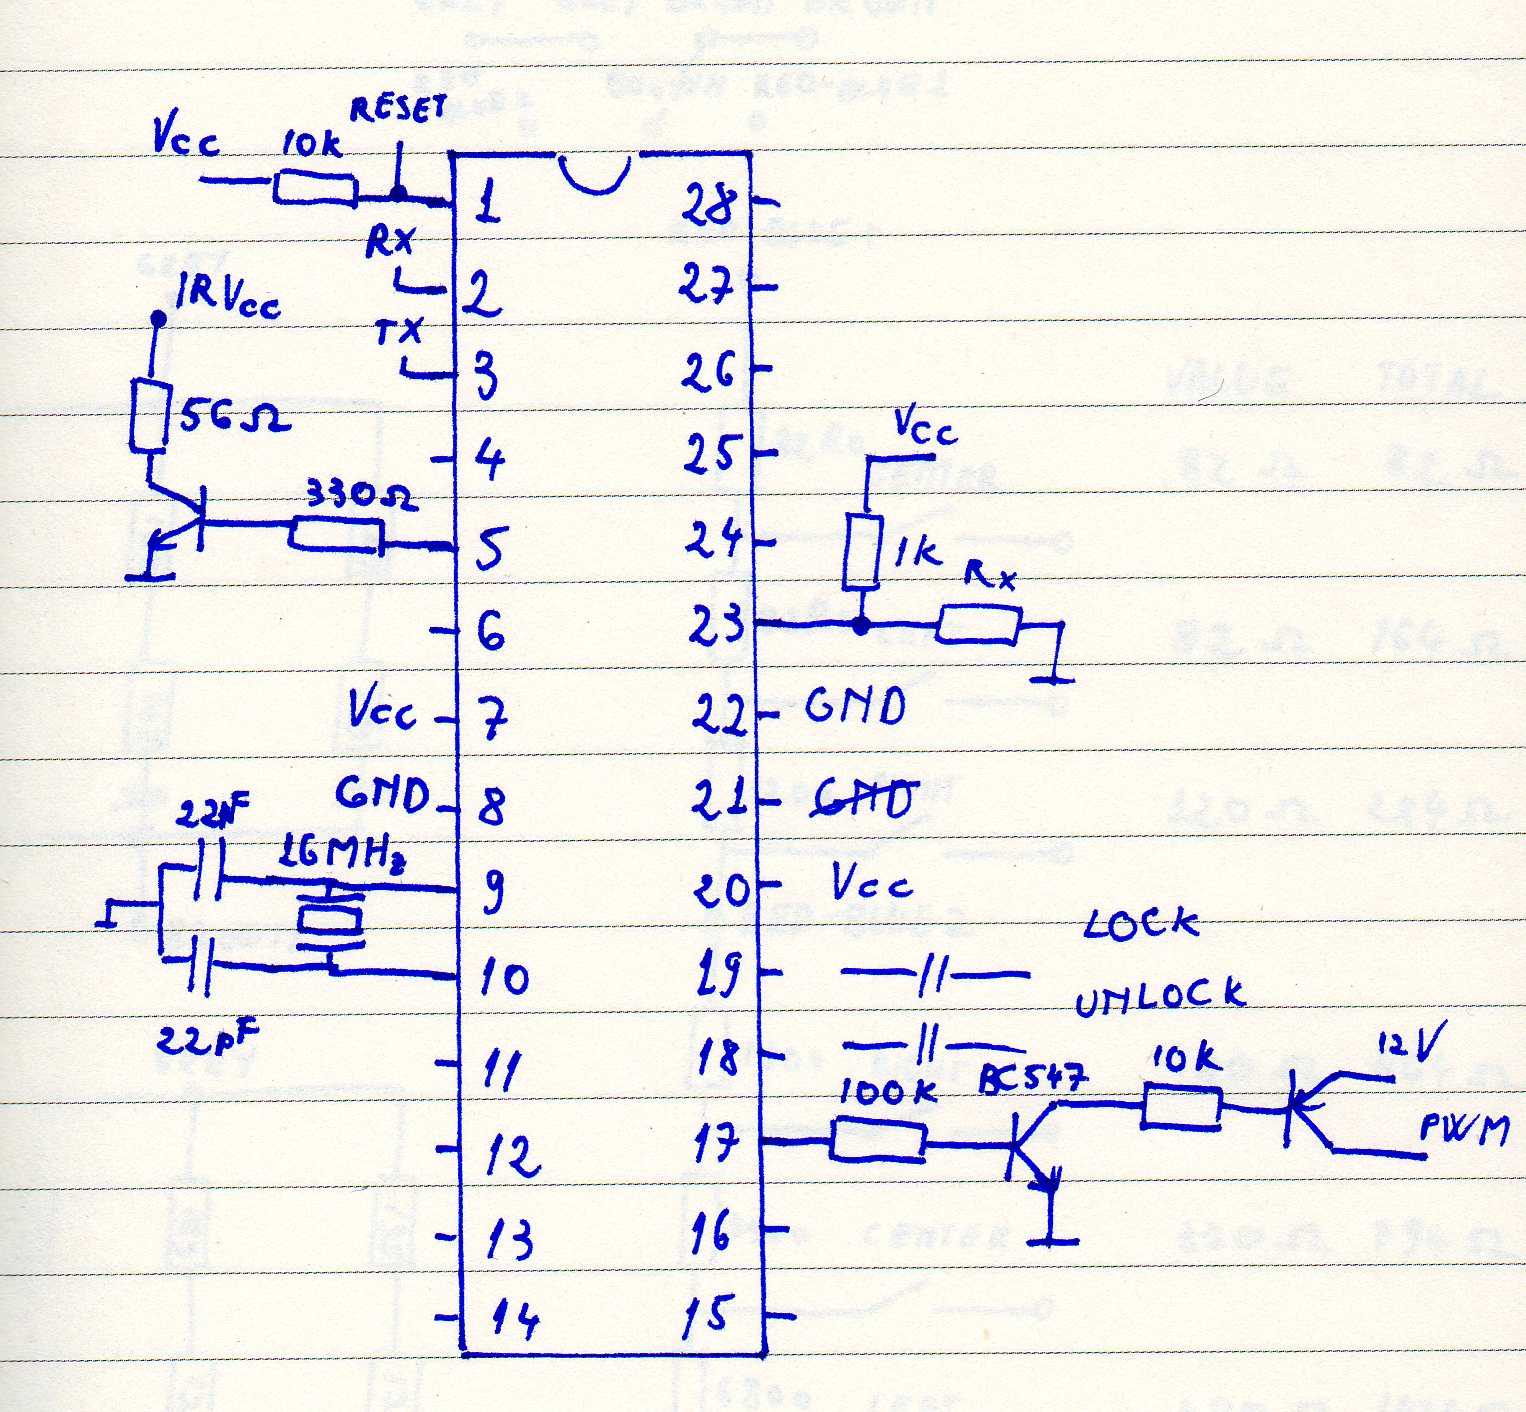 RESET
Vcc 10k
1 28
RX
2 27
IRVcc
TX
3 26
56Ω
Vcc
4 25
330Ω
5 24
1k Rx
6 23
Vcc 7 22 GND
GND 8 21 GND
22pF
16MHz
9 20 Vcc
LOCK
10 19
UNLOCK
22pF
11 18
100k BC547 10k 12V
12 17
PWM
13 16
14 15